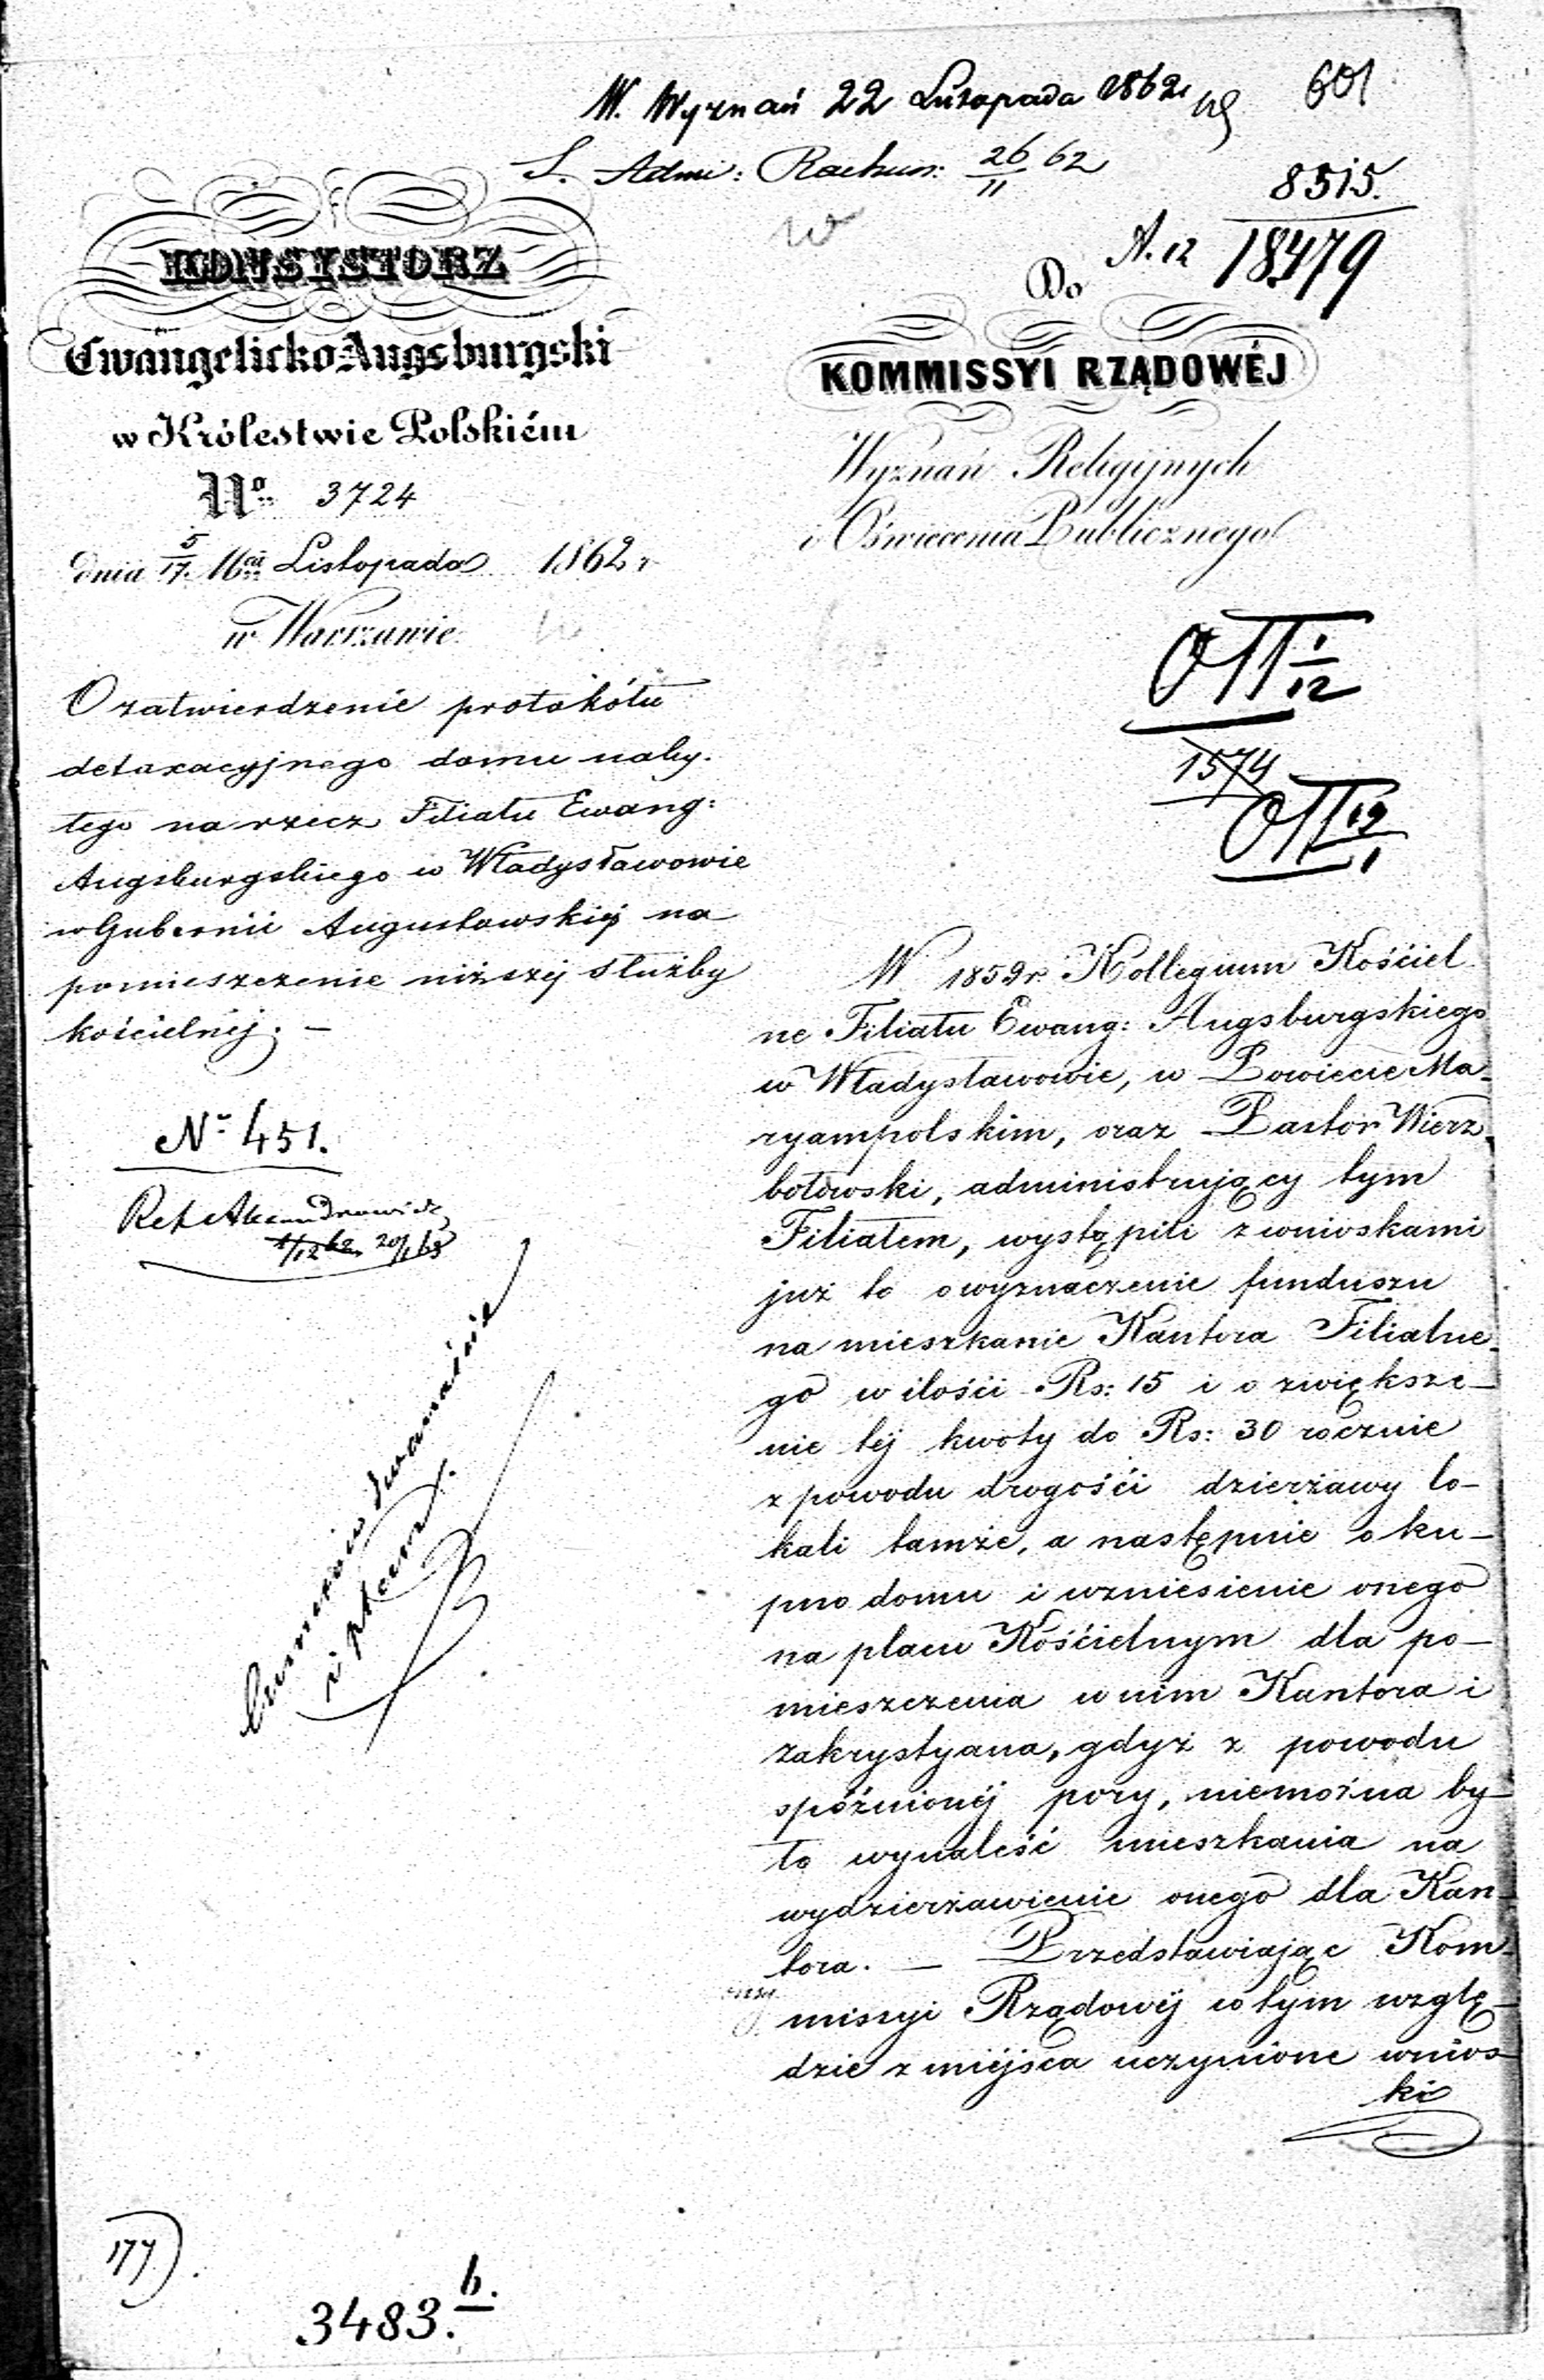 W. Wyznań 22 Listopada 1862
601
S. Adm: Rachun: 26/11 62
8515.
A. 12 18479
KONSYSTORZ
Ewangelicko-Augsburgski
w Królestwie Polskiém
No 3724
dnia 5/17 Mca Listopada 1862 r
w Warszawie
O zatwierdzenie protokółu
detaxacyjnego domu naby-
tego na rzecz Filiału Ewang:
Augsburgskiego w Władysławowie
w Gubernii Augustowskiej na
pomieszczenie niższej służby
kościelnej. —
No 451.
1/12 62 20/1 63
Do
KOMMISSYI RZĄDOWÉJ
Wyznań Religijnych
i Oświecenia Publicznego
1/12
1574
19/1
W 1859 r. Kollegium Kościel
ne Filiału Ewang: Augsburgskiego
w Władysławowie, w Powiecie Ma-
ryampolskim, oraz Pastor Wierz-
bołowski, administrujący tym
Filiałem, wystąpili z wnioskami
już to o wyznaczenie funduszu
na mieszkanie Kantora Filialne-
go w ilości Rs: 15 i o zwiększe-
nie téj kwoty do Rs: 30 rocznie
z powodu drogości dzierżawy lo-
kali tamże, a następnie o ku-
pno domu i wzniesienie onego
na placu Kościelnym dla po-
mieszczenia w nim Kantora i
zakrystyana, gdyż z powodu
spóźnionéj pory, niemożna by-
ło wynaleść mieszkania na
wydzierżawienie onego dla Kan-
tora. — Przedstawiając Kom-
missyi Rządowéj w tym wzglę-
dzie z miéjsca uczynione wnios-
ki
177).
3483. b.